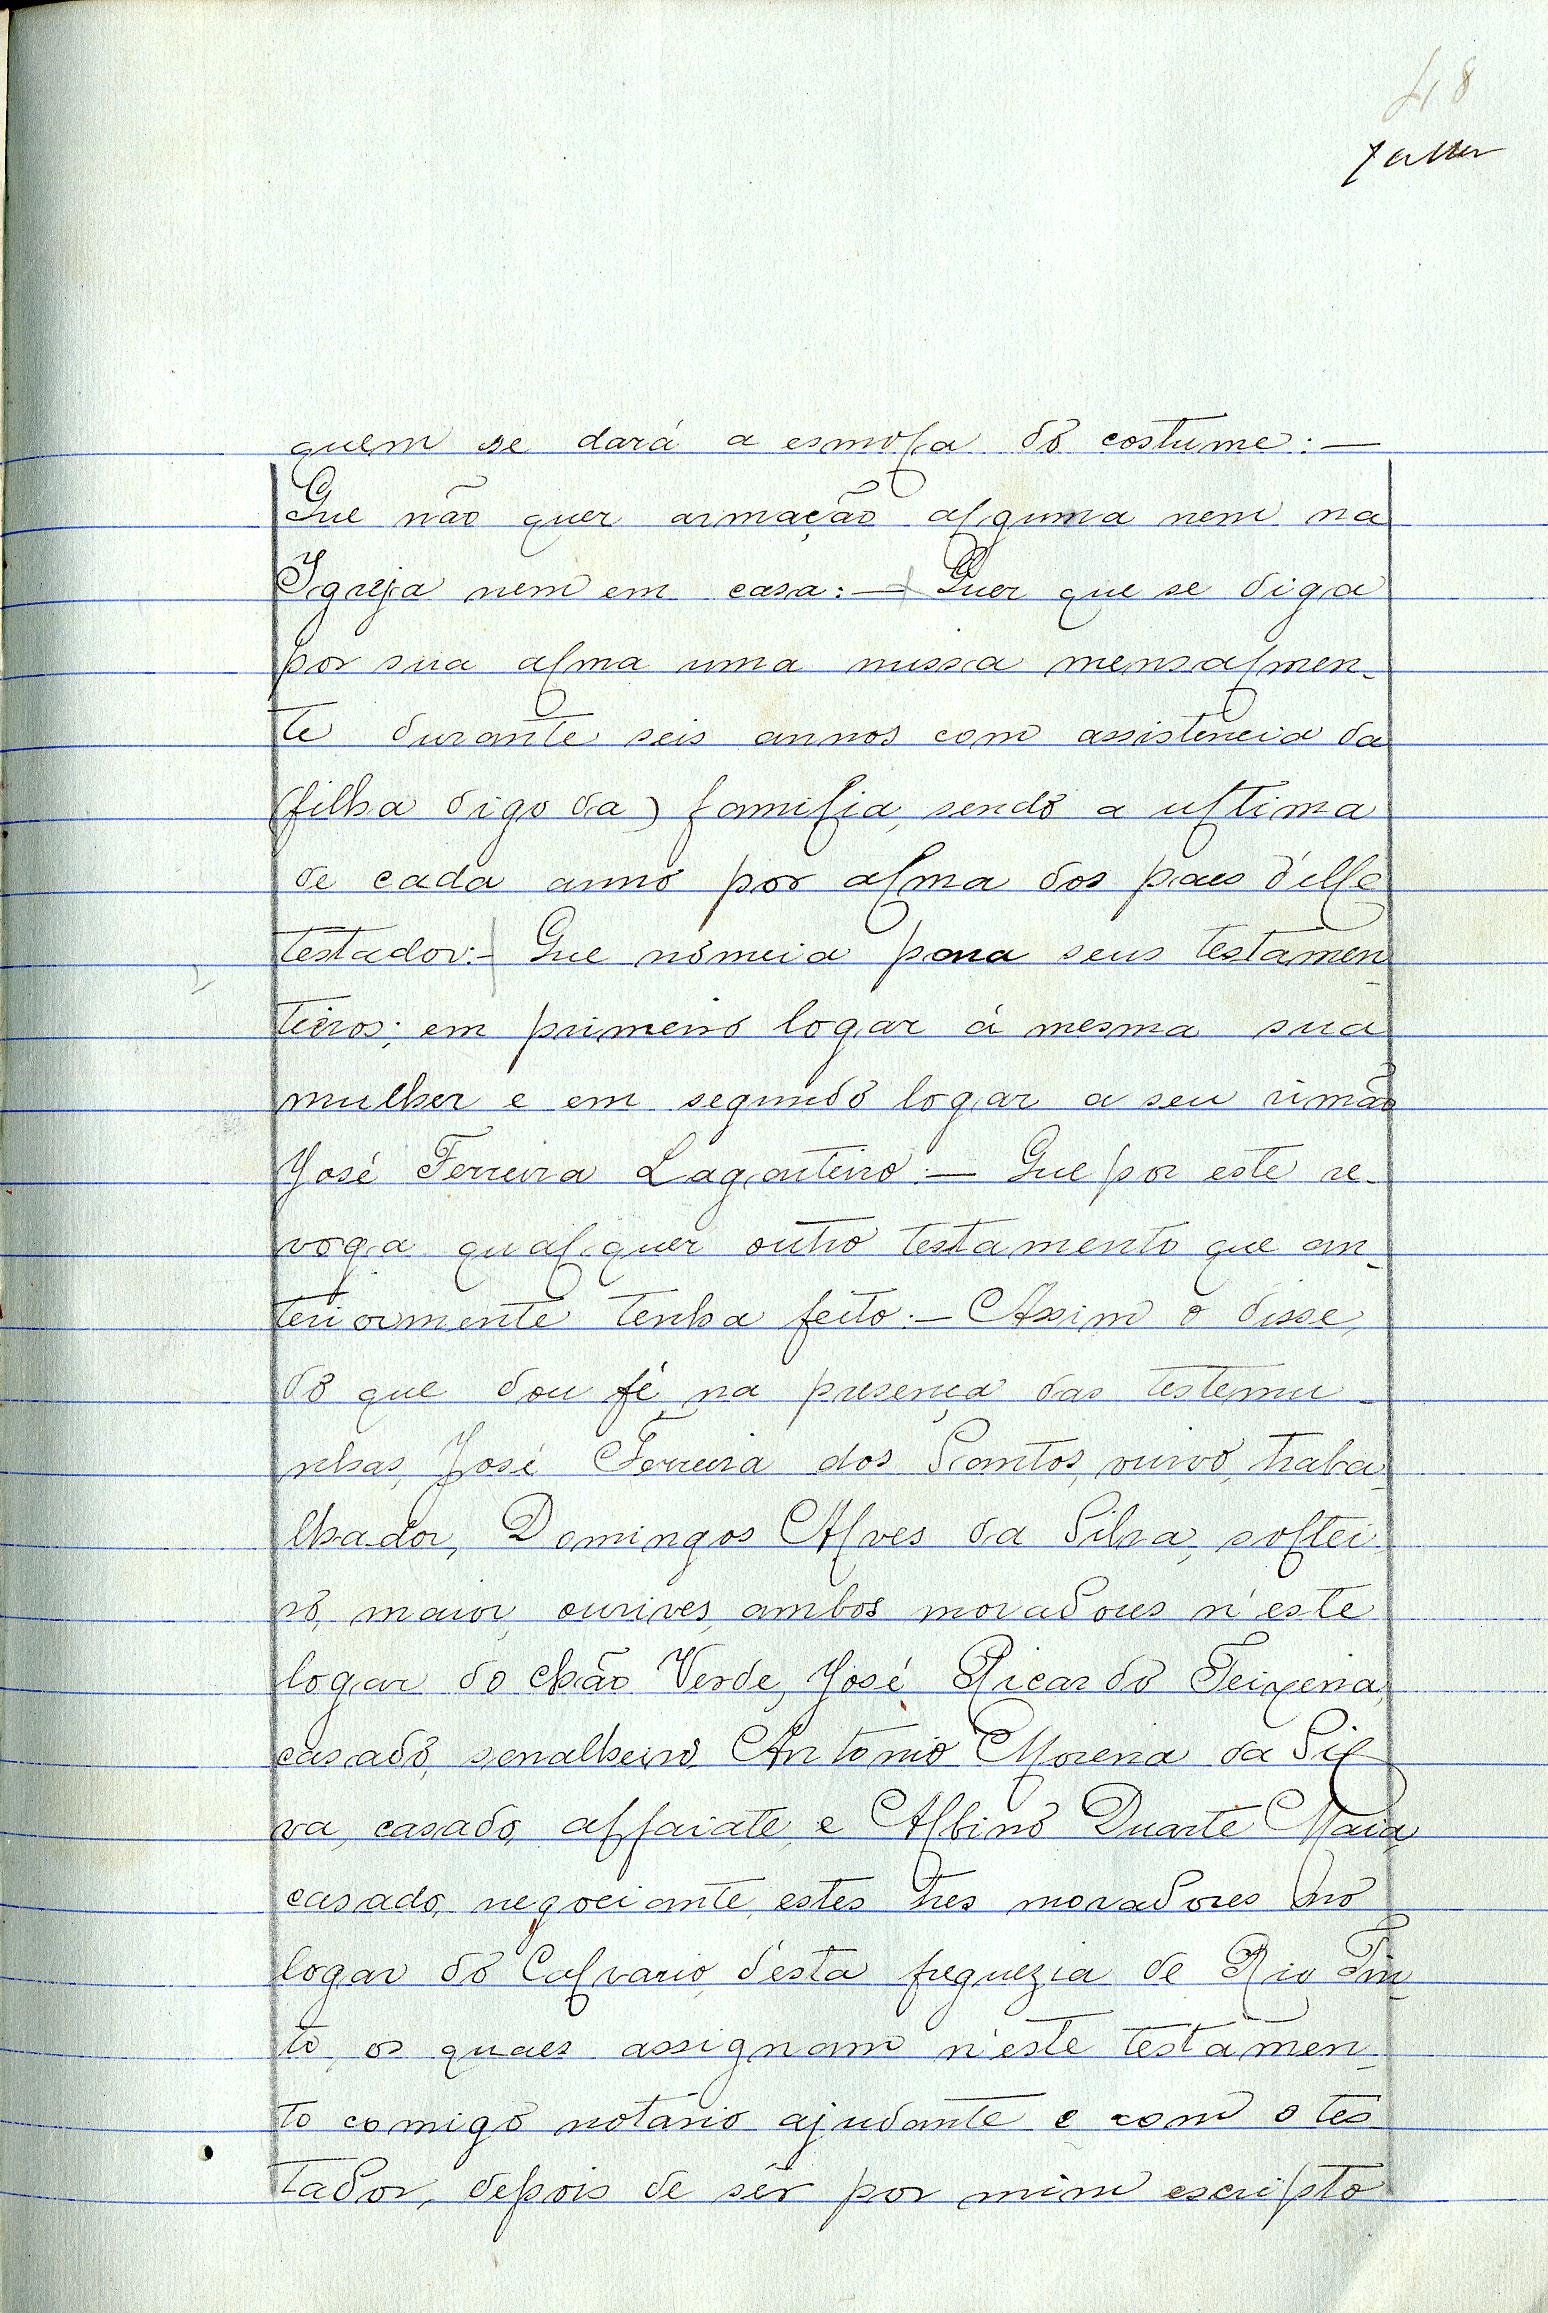 48
quem se dará a esmola do costume: —
Que não quer armação alguma nem na
Igreja nem em casa: — Quer que se diga
por sua alma uma missa mensalmen-
te durante seis annos com assistencia da
(filha digo da) familia, sendo a ultima
de cada anno por alma dos paes d'elle
testador: — Que nomeia para seus testamen-
teiros; em primeiro logar á mesma sua
mulher e em segundo logar a seu irmão
José Ferreira Lagarteiro: — Que por este re-
voga qualquer outro testamento que an-
teriormente tenha feito: — Assim o disse,
do que dou fé, na presença das testemu-
nhas, José Ferreira dos Santos, viuvo, traba-
lhador, Domingos Alves da Silva, soltei-
ro, maior, ourives, ambos moradores n'este
logar do chão Verde, José Ricardo Teixeira,
casado, serralheiro, Antonio Moreira da Sil
va, casado, alfaiate, e Albino Duarte Maia,
casado, negociante, estes tres moradores no
logar do Calvario, d'esta freguezia de Rio Tin-
to, os quaes assignam n'este testamen-
to comigo notário ajudante e com o tes
tador, depois de sêr por mim escripto